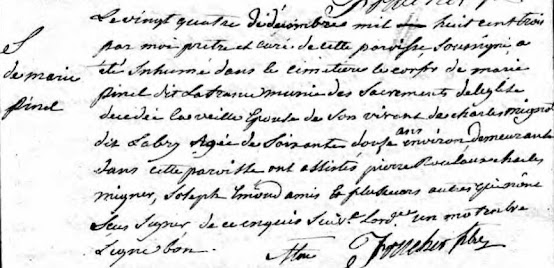 S
de marie
pinel
Le vingt quatre de décembre mil huit cent trois
par moi prêtre et curé de cette paroisse soussigné, a
été Inhumé dans le cimetiere le corps de marie
pinel dit La france munie des Sacrements de l'eglise
décédée la veille Epouse de Son vivant de charles mignot
dit Labry Agée de Soixante douze ans environ demeurante
dans cette paroisse ont assistés pierre charles
migner, Joseph Emond amis & plusieurs autres qui n'ont
Seu Signer, de ce enquis Suiv.t Lord.ce un mot entre
Ligne bon.